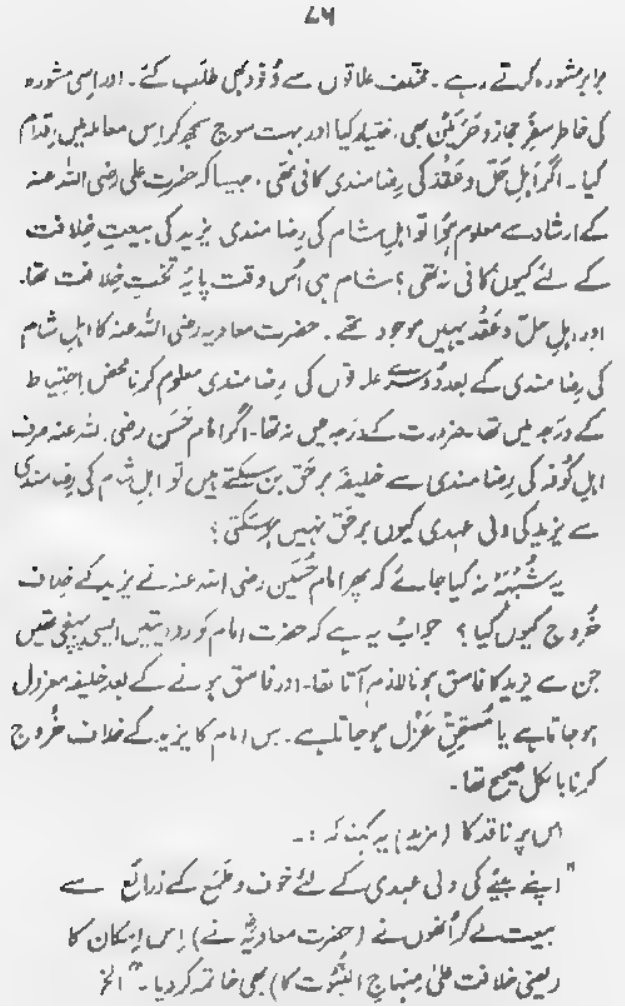 ۷۶
برابر مشورہ کرتے رہے ۔ مختلف علاقوں سے وُفود بھی طلب کئے ۔ اور اِسی مشورہ
کی خاطر سفرِ حجاز و حَرَمَین بھی اختیار کیا اور بہت سوچ سمجھ کر اِس معاملہ میں اِقدام
کیا ۔ اگر اہلِ حَلّ و عَقْد کی رِضا مندی کافی تھی ، جیسا کہ حضرت علی رضی اللہ عنہ
کے ارشاد سے معلوم ہُوا تو اہلِ شام کی رِضا مندی یزید کی بیعتِ خِلافت
کے لئے کیوں کافی نہ تھی ؟ شام ہی اُس وقت پایۂ تختِ خِلافت تھا.
اور اہلِ حلّ و عَقْد یہیں موجود تھے ۔ حضرت معاویہ رضی اللہ عنہ کا اہلِ شام
کی رِضا مندی کے بعد دُوسرے علاقوں کی رضا مندی معلوم کرنا محض اِحتیاط
کے دَرَجہ میں تھا ۔ ضرورت کے دَرَجہ میں نہ تھا ۔ اگر امام حَسَن رضی اللہ عنہ صرف
اہلِ کُوفہ کی رِضا مندی سے خلیفۂ برحَق بن سکتے ہیں تو اہلِ شام کی رِضا مندی
سے یزید کی ولی عہدی کیوں برحَق نہیں ہو سَکتی ؟
یہ شُبہَہ نہ کیا جائے کہ پھر امام حُسَین رضی اللہ عنہ نے یزید کے خلاف
خُروج کیوں کیا ؟ جوابُ یہ ہے کہ حضرت امام کو روایتیں ایسی پہنچی تھیں
جن سے یزید کا فاسق ہونا لازم آتا تھا ۔ اور فاسق ہونے کے بعد خلیفہ معزول
ہو جاتا ہے یا مُستَحِقِّ عَزْل ہو جاتا ہے ۔ بس امام کا یزید کے خلاف خُروج
کرنا بالکل صحیح تھا ۔
اس پر ناقد کا (مزید) یہ کہنا کہ :۔
"اپنے بیٹے کی ولی عہدی کے لئے خوف و طَمَع کے ذرائع سے
بیعت لے کر اُنھوں نے (حضرت معاویہؓ نے) اِس اِمکان کا
(یعنی خلافت علیٰ مِنہاجِ النُّبُوت کا) بھی خاتمہ کر دیا ۔" الخ